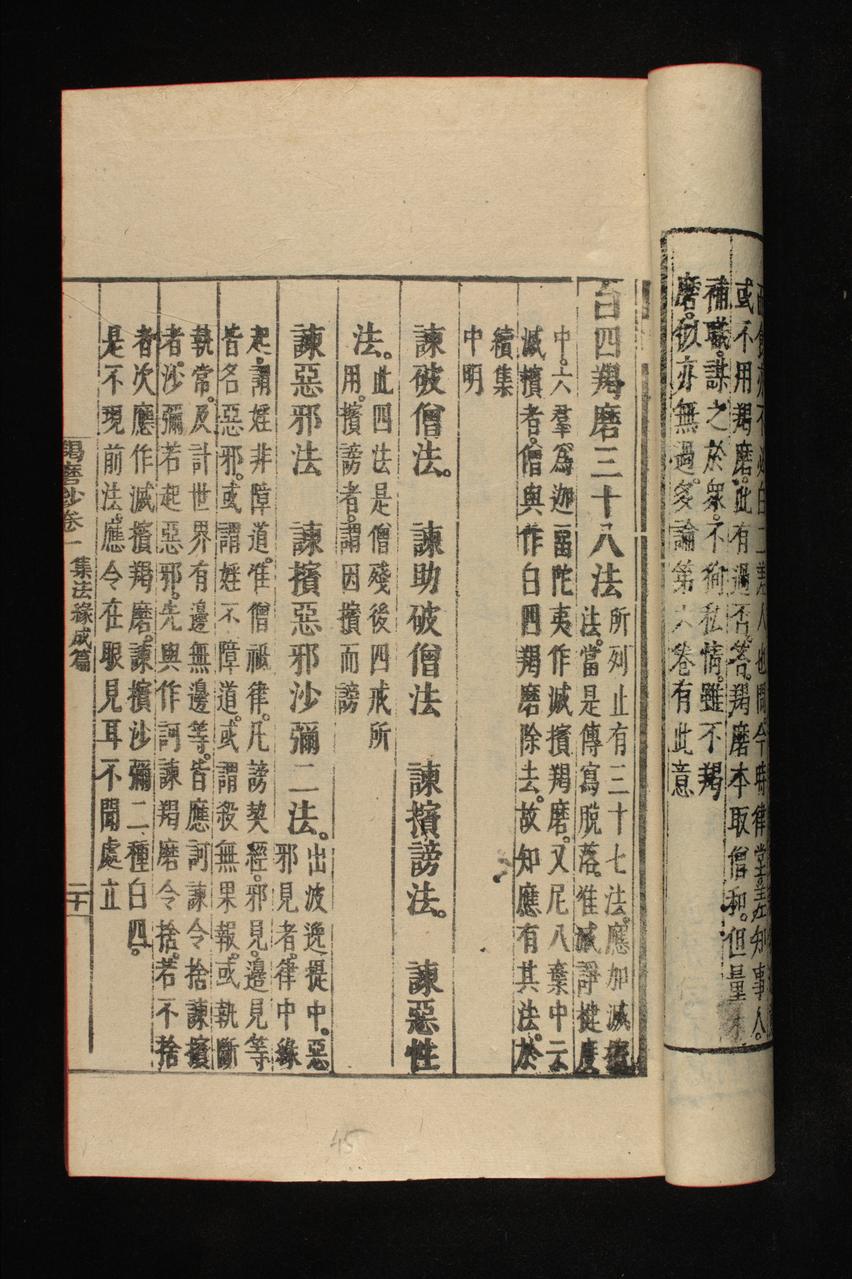 或不用羯磨。此有過否。答。羯磨本取僧和。但量
補職。謀之於眾。不徇私情。雖不羯
磨。似亦無過。多論第六卷有此意
白四羯磨三十八法
所列止有三十七法。應加滅擯
法。當是傳寫脫落。准滅諍揵度
中。六羣為迦留陀夷作滅擯羯磨。又尼八棄中云
滅擯者。僧與作白四羯磨除去。故知應有其法。於
續集
中明
諫破僧法。 諫助破僧法 諫擯謗法。 諫惡性
法。
此四法是僧殘後四戒所
用。擯謗者。謂因擯而謗
諫惡邪法 諫擯惡邪沙彌二法。
出波逸提中。惡
邪見者。律中緣
起。謂婬非障道。惟僧祇律。凡謗契經。邪見。邊見等
皆名惡邪。或謂婬不障道。或謂殺無果報。或執斷
執常。及計世界有邊無邊等。皆應訶諫令捨諫擯
者。沙彌若起惡邪。先與作訶諫羯磨令捨。若不捨
者次應作滅擯羯磨。諫擯沙彌二種白四。
是不現前法。應令在眼見耳不聞處立
羯磨鈔卷一 集法緣成篇
二十
45